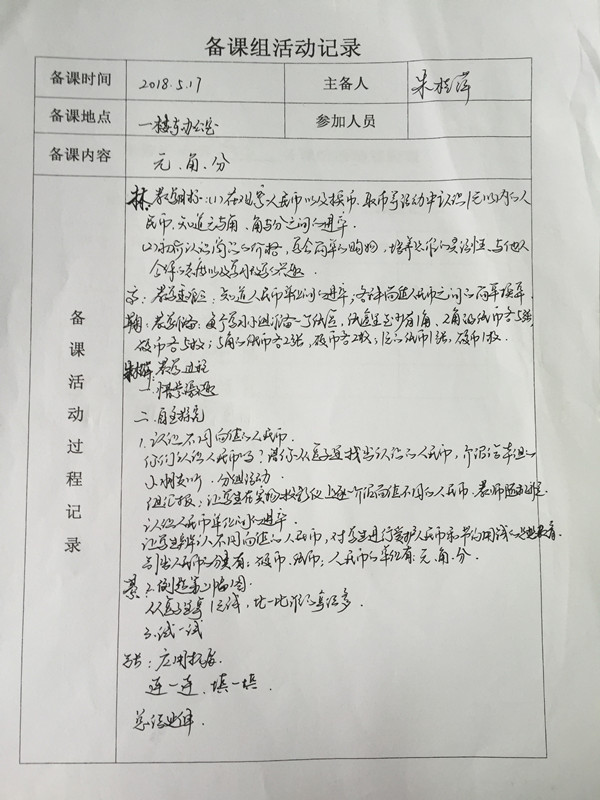 备课组活动记录
备课时间 2018.5.17 主备人 朱桂萍
备课地点 一楼东办公室 参加人员
备课内容 元、角、分
备课活动过程记录
林 教学目标:(1)在认识人民币以及换币、取币等活动中认识1元以内的人
民币,知道元与角、角与分之间的进率。
(2)初步认识商品的价格,学会简单的购物,培养思维的灵活性、与他人
合作的态度以及学习数学的兴趣。
教学重难点:知道人民币单位间的进率,各种面值人民币之间的简单换算。
教学准备:每个学习小组准备一个纸盒,纸盒里至少有1角、2角的纸币各5张
硬币各5枚;5角的纸币各2张,硬币各2枚;1元的纸币1张,硬币1枚。
教学过程
一、
二、自主探究
1.认识不同面值的人民币。
你们认识人民币吗?请你从盒子里找出认识的人民币,介绍给本组的
小朋友听。分组活动
组汇报:让学生在实物投影仪上逐一介绍面值不同的人民币,教师随机
认识人民币单位间的进率。
让学生辨认不同面值的人民币,对学生进行爱护人民币和节约用钱的思想教育
人民币的分类有:硬币、纸币,人民币的单位有:元、角、分。
2.例题第二幅图
从盒子里拿1元钱,比一比谁的拿法多。
3.试一试
应用拓展
连一连、填一填。